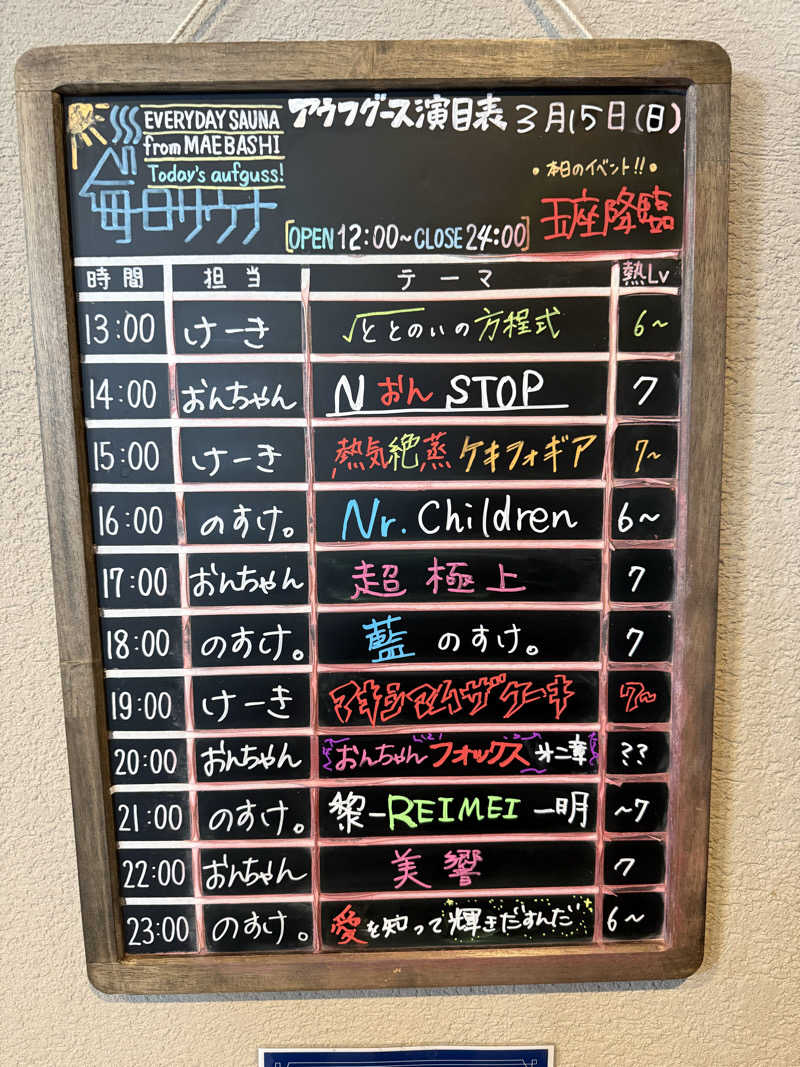 EVERYDAY SAUNA
from MAEBASHI
Today's aufguss!
毎日サウナ
アウフグース演目表 3月15日(日)
・本日のイベント!!・
[OPEN 12:00~CLOSE 24:00]
五座降臨
時間 担当 テーマ 熱Lv
13:00 けーき √ととのいの方程式 6~
14:00 おんちゃん NおんSTOP 7
15:00 けーき 熱気絶蒸ケキフォギア 7~
16:00 のすけ。 Nr.Children 6~
17:00 おんちゃん 超極上 7
18:00 のすけ。 藍のすけ。 7
19:00 けーき マキシマムザケーキ 7~
20:00 おんちゃん おんちゃんフォックス 第二章 ??
21:00 のすけ。 黎-REIMEI-明 ~7
22:00 おんちゃん 美響 7
23:00 のすけ。 愛を知って輝きだすんだ 6~